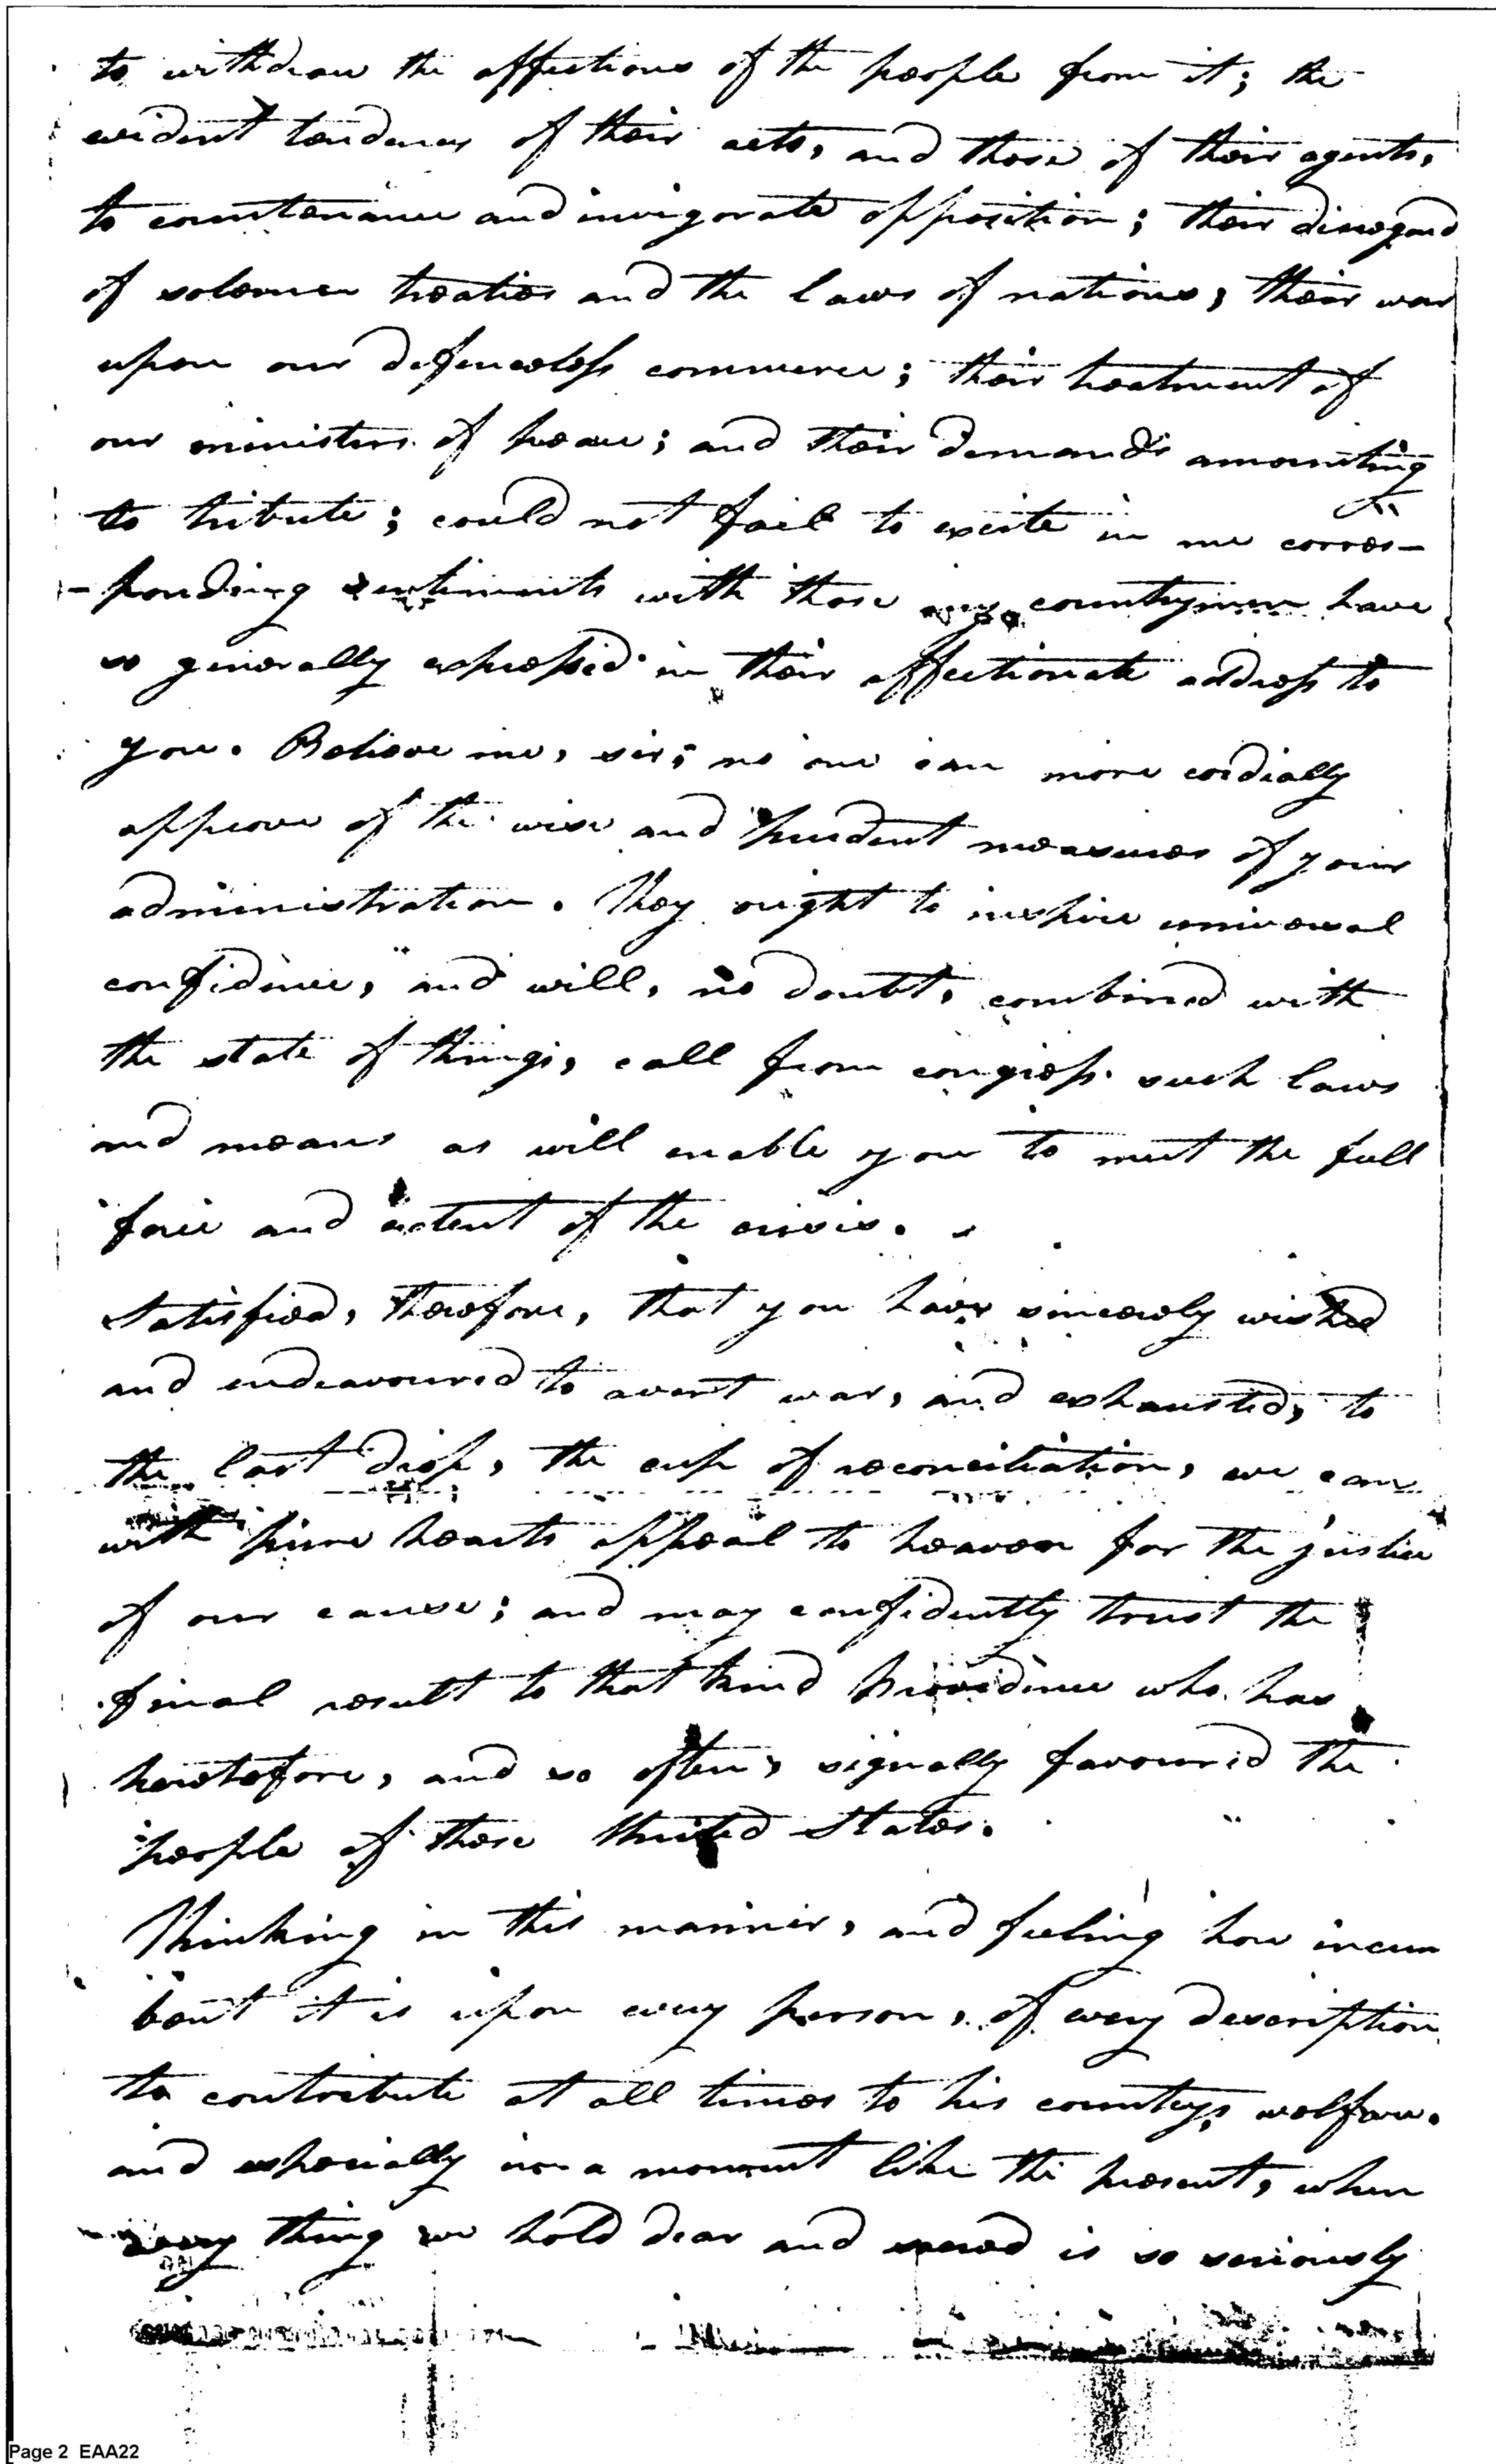 to withdraw the affections of the people from it; the
evident tendency of their acts, and those of their agents,
to countenance and invigorate opposition; their disregard
of solemn treaties and the laws of nations; their war
upon our defenceless commerce; their treatment of
our ministers of peace; and their demands amounting
to tribute; could not fail to excite in me corres-
-ponding sentiments with those my countrymen have
so generally expressed in their affectionate address to
you. Believe me, sir, no one can more cordially
approve of the wise and prudent measures of your
administration. They ought to inspire universal
confidence, and will, no doubt, combined with
the state of things, call from congress such laws
and means as will enable you to meet the full
force and extent of the crisis.
Satisfied, therefore, that you have sincerely wished
and endeavoured to avert war, and exhausted, to
the last drop, the cup of reconciliation, we can
with pure hearts appeal to heaven for the justice
of our cause; and may confidently trust the
final result to that kind Providence who has
heretofore, and so often, signally favoured the
people of these United States.
Thinking in this manner, and feeling how incum
bent it is upon every person, of every description
to contribute at all times to his countrys welfare,
and especially in a moment like the present, when
every thing we hold dear and sacred is so seriously
Page 2 EAA22